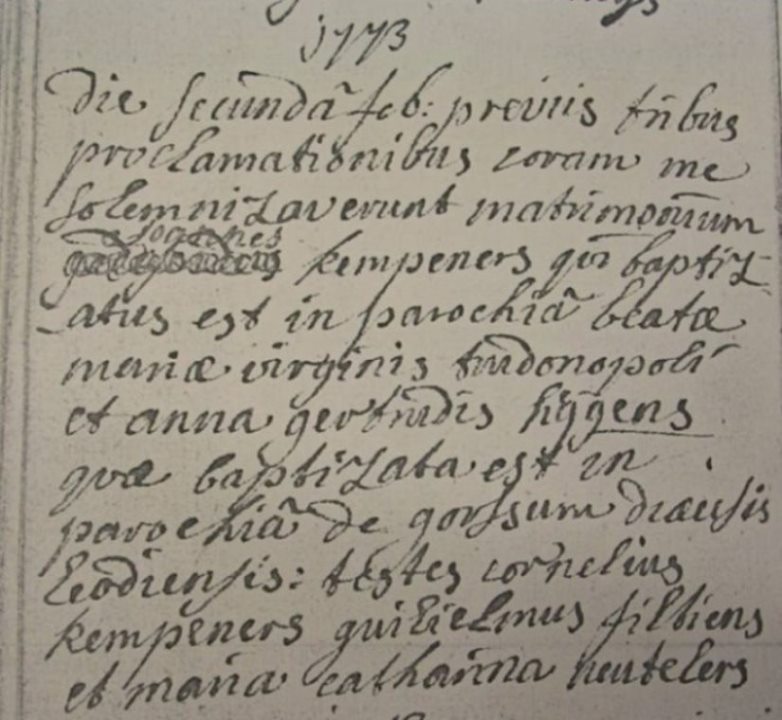 1773
Die secundâ feb: previis tribus
proclamationibus coram me
solemnizaverunt matrimonium
joannes
kempeners qui baptiz-
atus est in parochiâ beatæ
mariæ virginis trudonopoli
et anna gertrudis hijgens
quæ baptizata est in
parochiâ de gorssum diæcesis
leodiensis: testes cornelius
kempeners guilielmus filtiens
et maria catharina neutelers